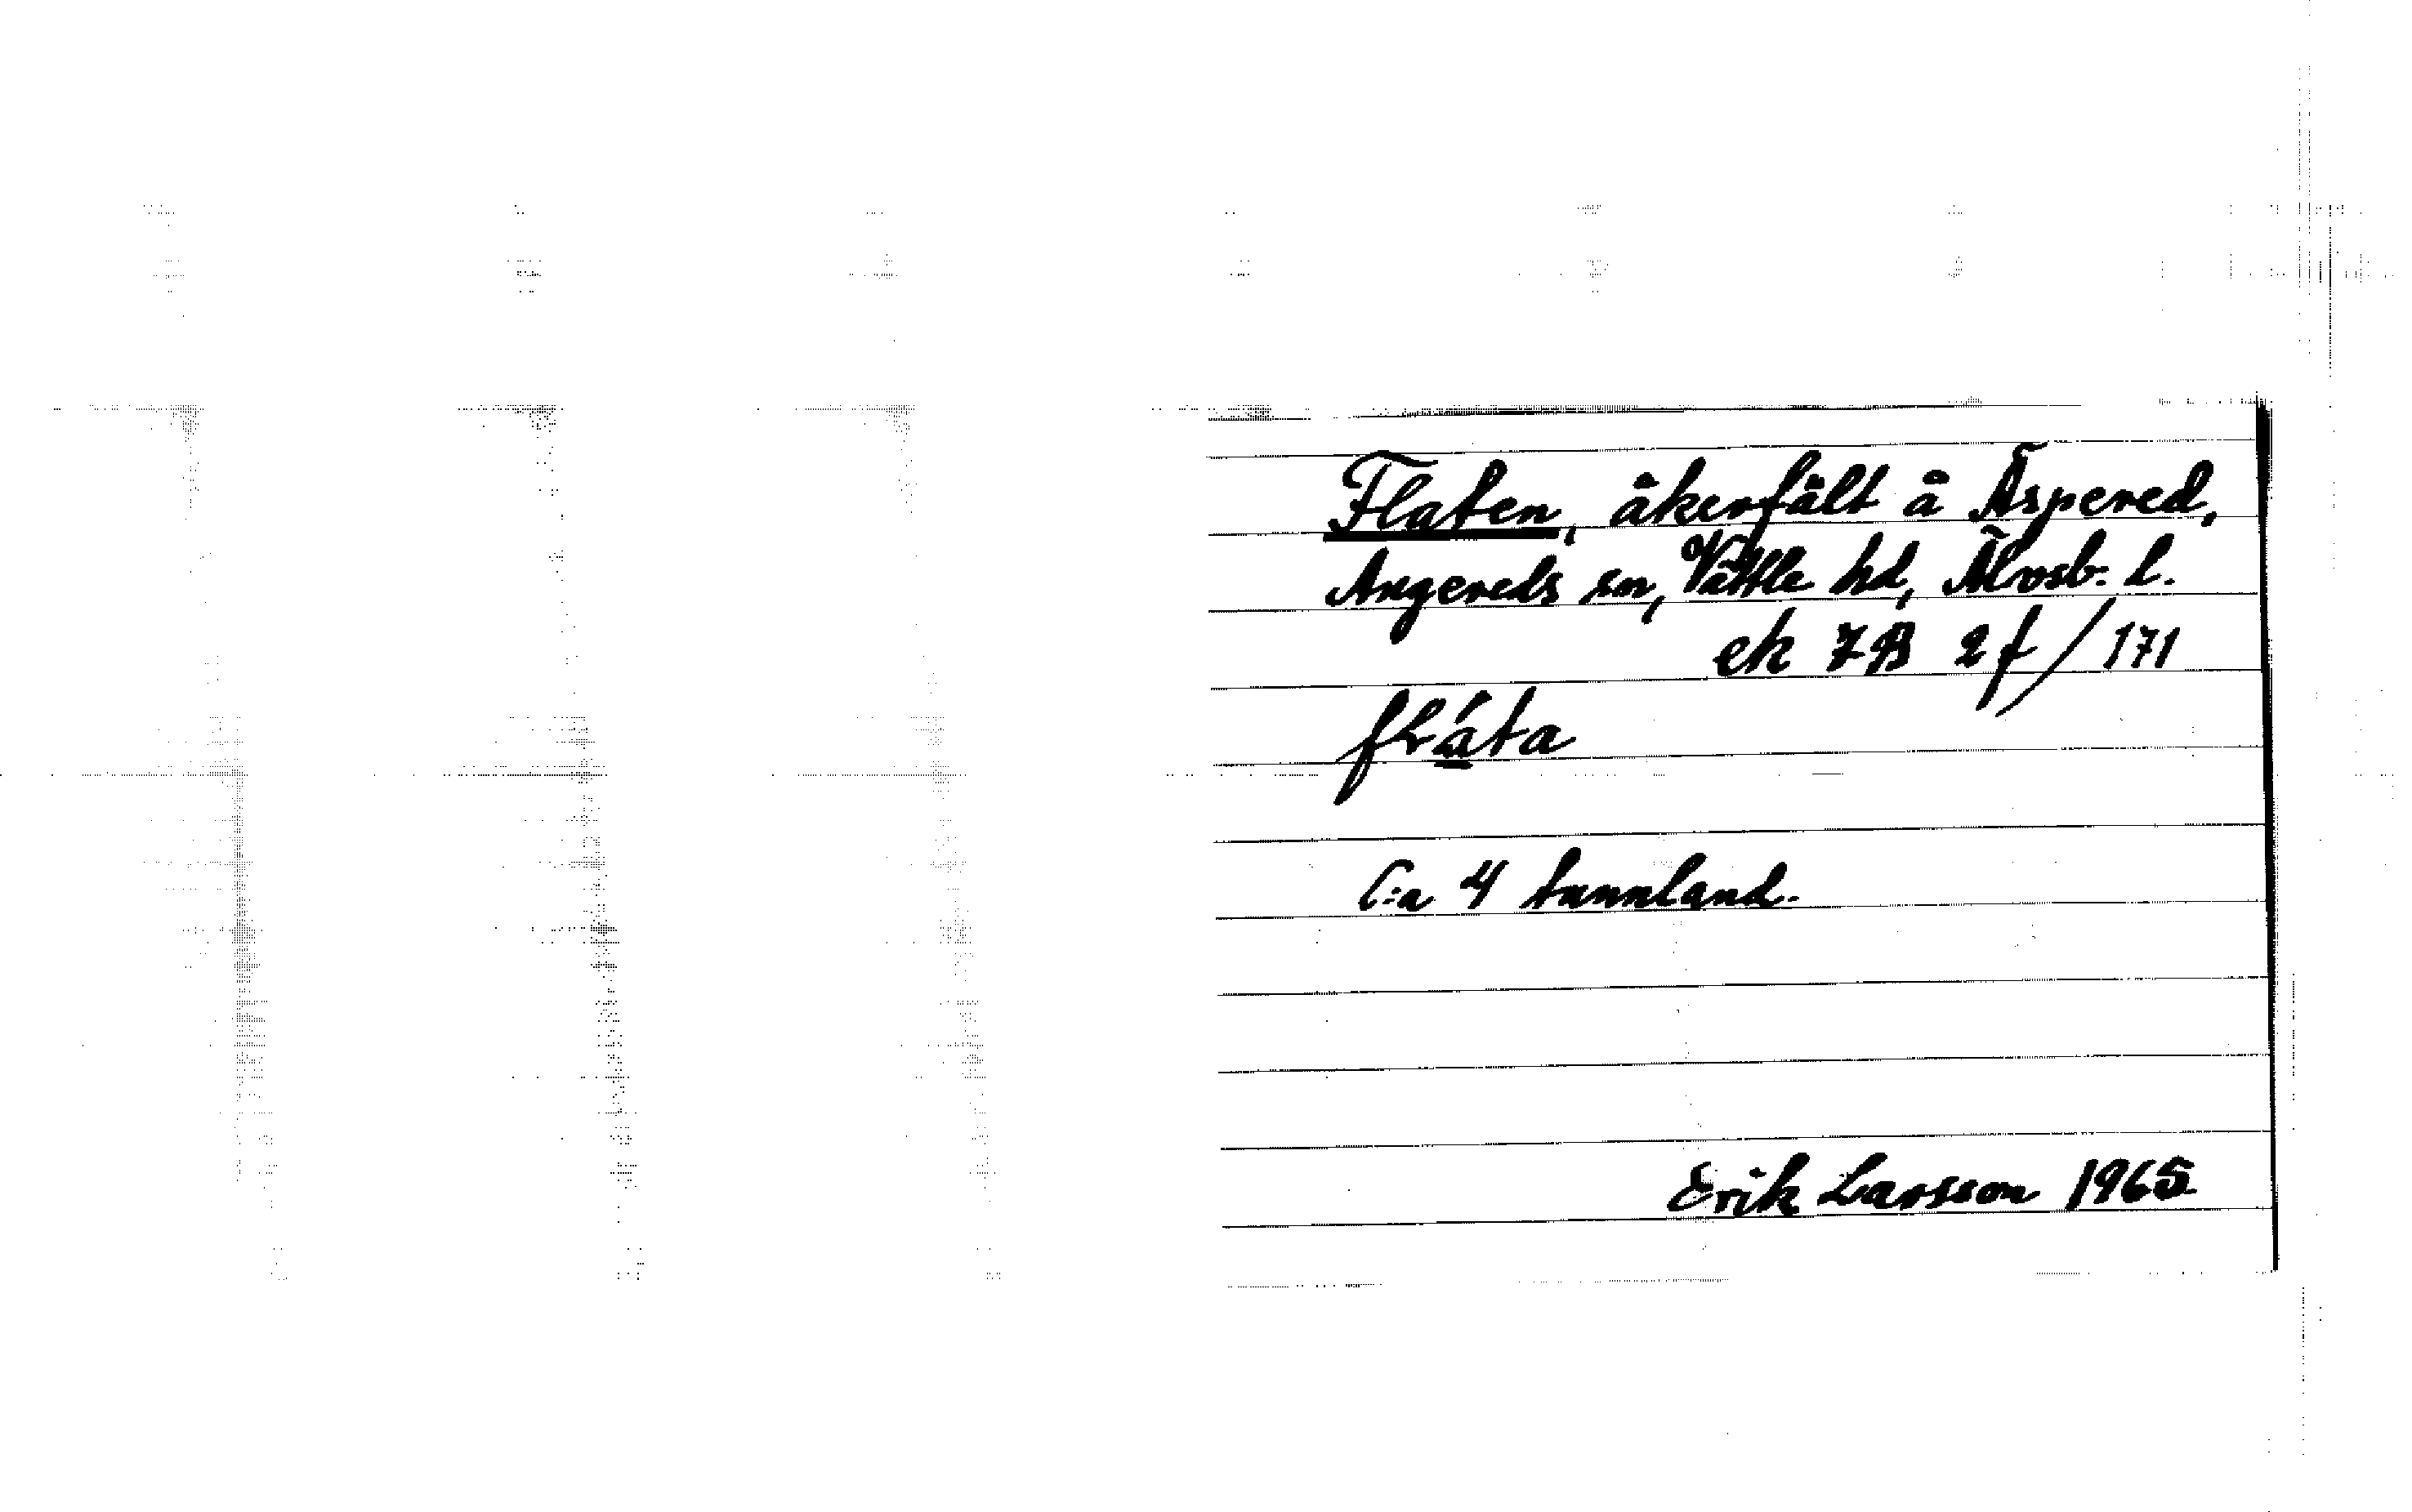 Flaten, åkerfält å Äspered,
Angereds sn, Vättle hd, Älvsb. l.
ek 7B 2f/171
fláta
C:a 4 tunnland.
Erik Larsson 1965